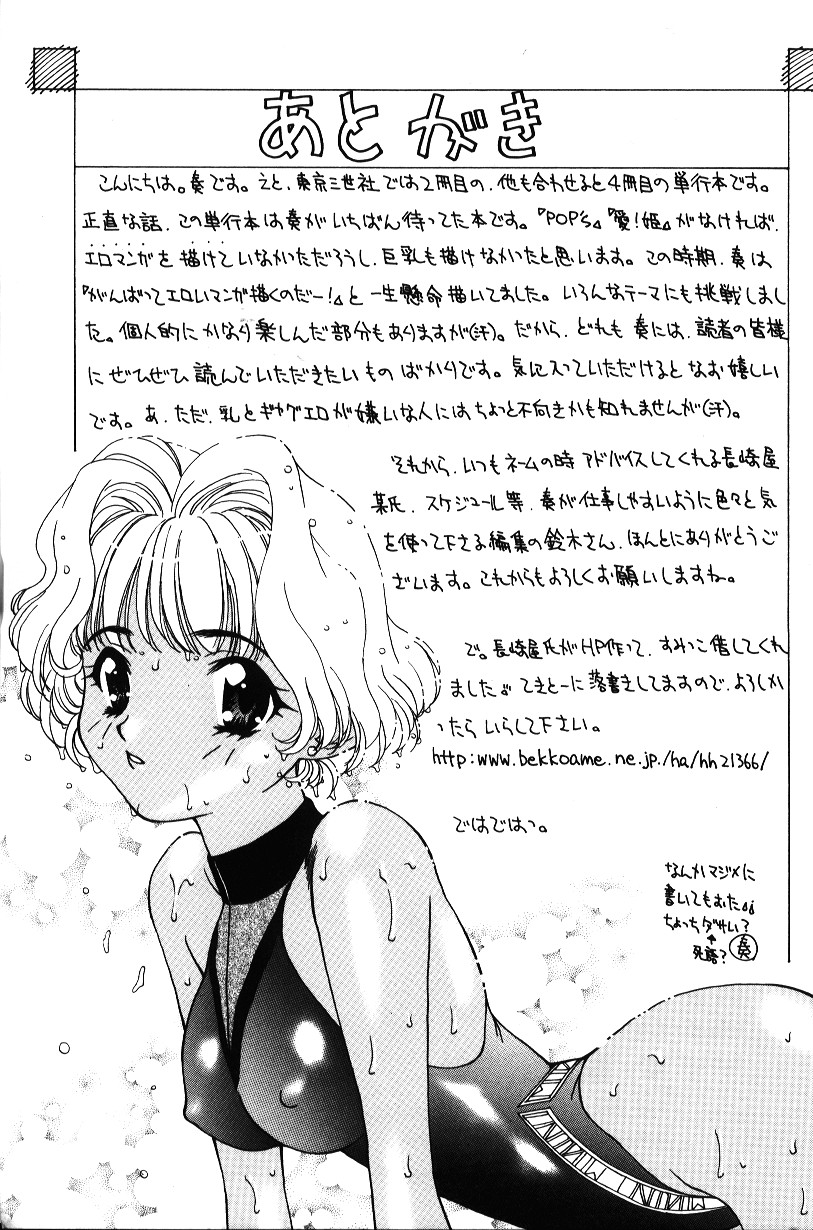 あとがき
こんにちは。奏です。えと、東京三世社では2冊目の、他も合わせると4冊目の単行本です。
正直な話、この単行本は奏がいちばん待ってた本です。『POP's』『愛!姫』がなければ、
エロマンガを描けていなかっただろうし、巨乳も描けなかったと思います。この時期、奏は
『がんばってエロいマンガ描くのだー!』と一生懸命描いてました。いろんなテーマにも挑戦しまし
た。個人的にかなり楽しんだ部分もありますが(汗)。だから、どれも奏には、読者の皆様
にぜひぜひ読んでいただきたいものばかりです。気に入っていただけるとなお嬉しい
です。あ、ただ、乳とギャグエロが嫌いな人にはちょっと不向きかも知れませんが(汗)。
それから、いつもネームの時アドバイスしてくれる長崎屋
某氏、スケジュール等、奏が仕事しやすいように色々と気
を使って下さる編集の鈴木さん、ほんとにありがとうご
ざいます。これからもよろしくお願いしますね。
で。長崎屋氏がHP作って、すみっこ借してくれ
ました♪てきとーに落書きしてますので、よろしか
ったらいらして下さい。
http:www.bekkoame.ne.jp./ha/hh21366/
ではではっ。
なんかマジメに
書いてもおた。
ちょっちダサい?
↑
死語?
奏